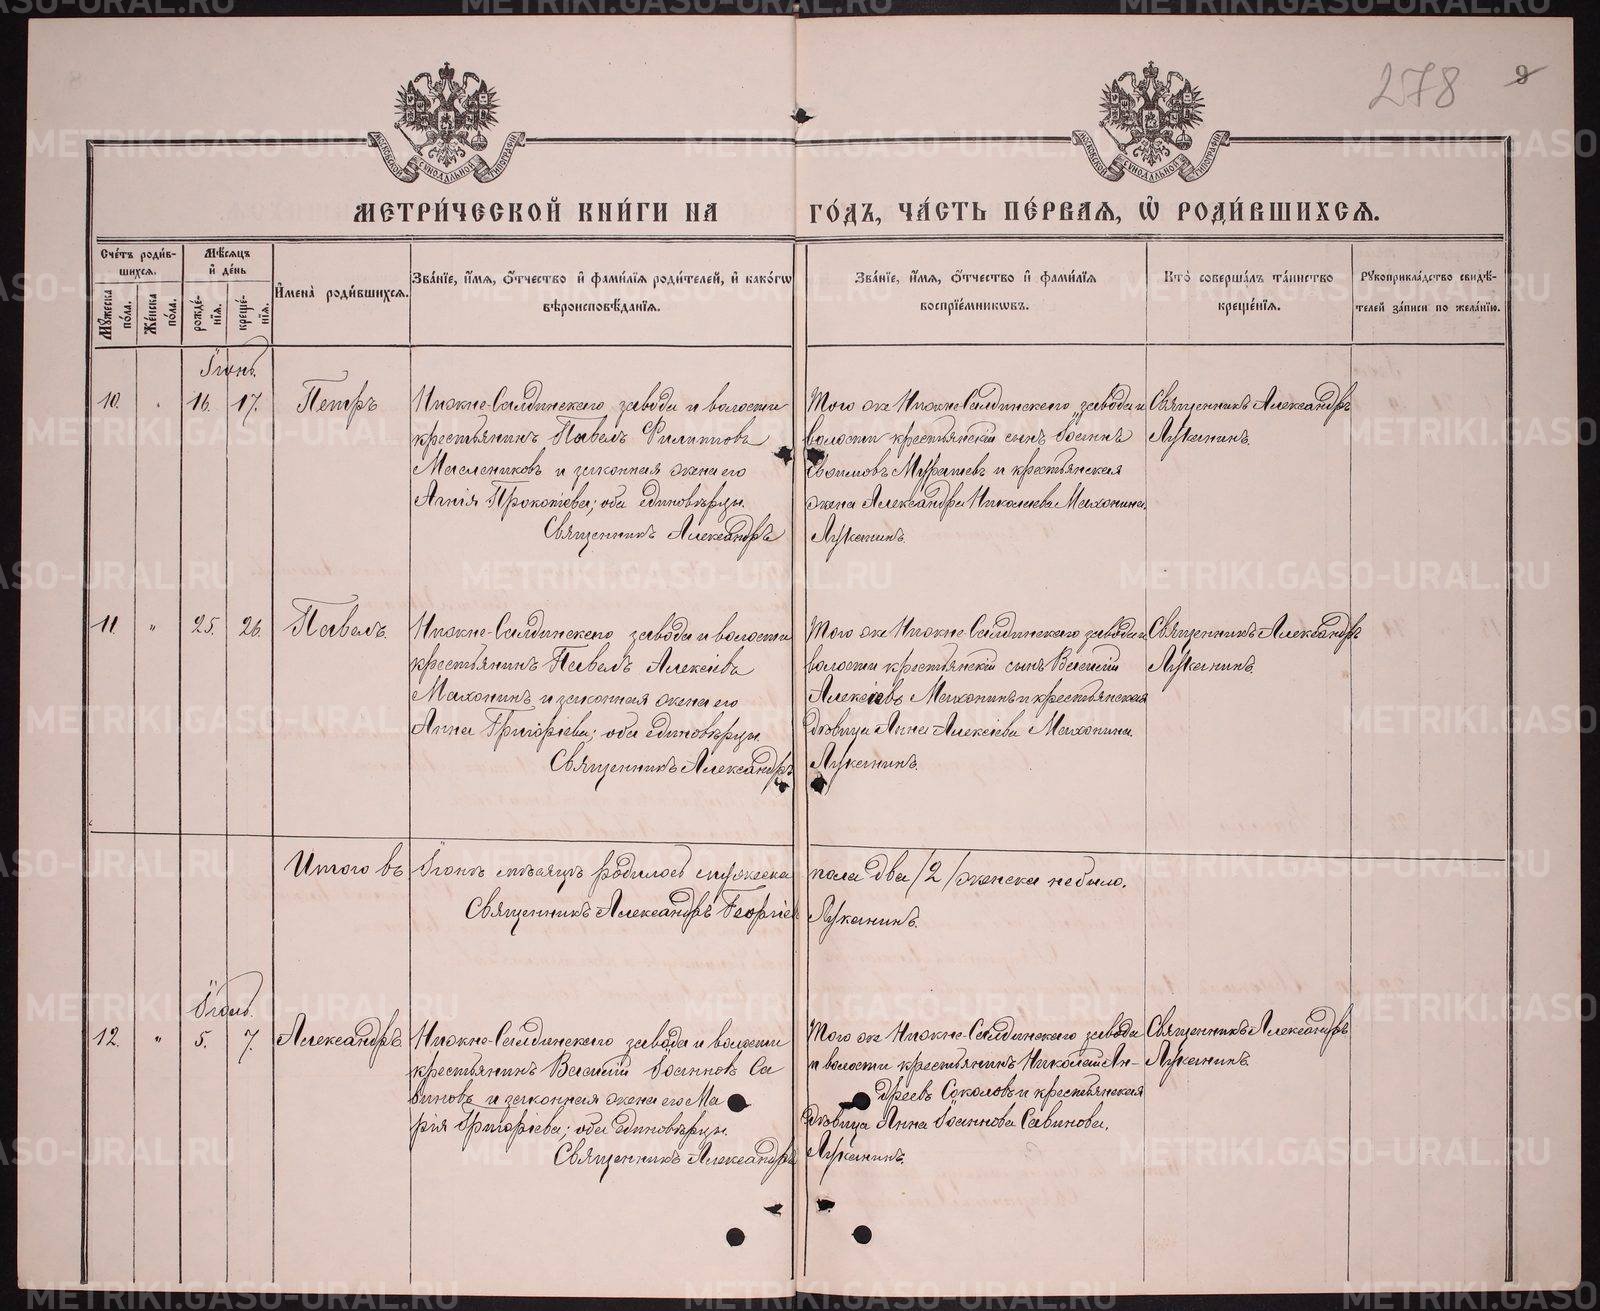 278 9
МЕТРИ́ЧЕСКОЙ КНИ́ГИ НА ГО́ДЪ, ЧА́СТЬ ПЕ́РВАѦ, Ѡ҆ РОДИ́ВШИХСѦ.
Сче́тъ роди́в-
шихсѧ.
Мꙋ́жеска по́ла.
Же́нска по́ла.
Мѣ́сѧцъ и҆ де́нь
рожде́-
нїѧ.
креще́-
нїѧ.
И҆мена̀ роди́вшихсѧ.
Зва́нїе, и҆́мѧ, ѻ҆́тчество и҆ фами́лїѧ роди́телей, и҆ како́гѡ
вѣроисповѣ́данїѧ.
Зва́нїе, и҆́мѧ, ѻ҆́тчество и҆ фами́лїѧ
воспрїе́мникѡвъ.
Кто̀ соверша́лъ та́инство
креще́нїѧ.
Рꙋкоприкла́дство свидѣ́-
телей за́писи по жела́нїю.
Іюнь.
10. " 16. 17. Петръ
Нижне-Салдинскаго завода и волости
крестьянинъ Павелъ Филипповъ
Маслениковъ и законная жена его
Агнія Прокопіева; оба единовѣрцы.
Священникъ Александръ Луканинъ.
Того же Нижне-Салдинскаго завода и
волости крестьянскій сынъ Іоаннъ
Евфимовъ Мурашевъ и крестьянская
жена Александра Николаева Махонина.
Священникъ Александръ
Луканинъ.
11. " 25. 26. Павелъ.
Нижне-Салдинскаго завода и волости
крестьянинъ Павелъ Алексіевъ
Махонинъ и законная жена его
Анна Григоріева; оба единовѣрцы.
Священникъ Александръ Луканинъ.
Того же Нижне-Салдинскаго завода и
волости крестьянскій сынъ Василій
Алексіевъ Махонинъ и крестьянская
дѣвица Анна Алексіева Махонина.
Священникъ Александръ
Луканинъ.
Итого въ Іюнѣ мѣсяцѣ родилось мужеска пола два /2/ женска небыло.
Священникъ Александръ Георгіевъ Луканинъ.
Іюль.
12. " 5. 7. Александръ
Нижне-Салдинскаго завода и волости
крестьянинъ Василій Іоанновъ Са
виновъ и законная жена его Ма
рія Григоріева; оба единовѣрцы.
Священникъ Александръ Луканинъ.
Того же Нижне-Салдинскаго завода
и волости крестьянинъ Николай Ан-
дреевъ Соколовъ и крестьянская
дѣвица Анна Іоаннова Савинова.
Священникъ Александръ
Луканинъ.
METRIKI.GASO-URAL.RU